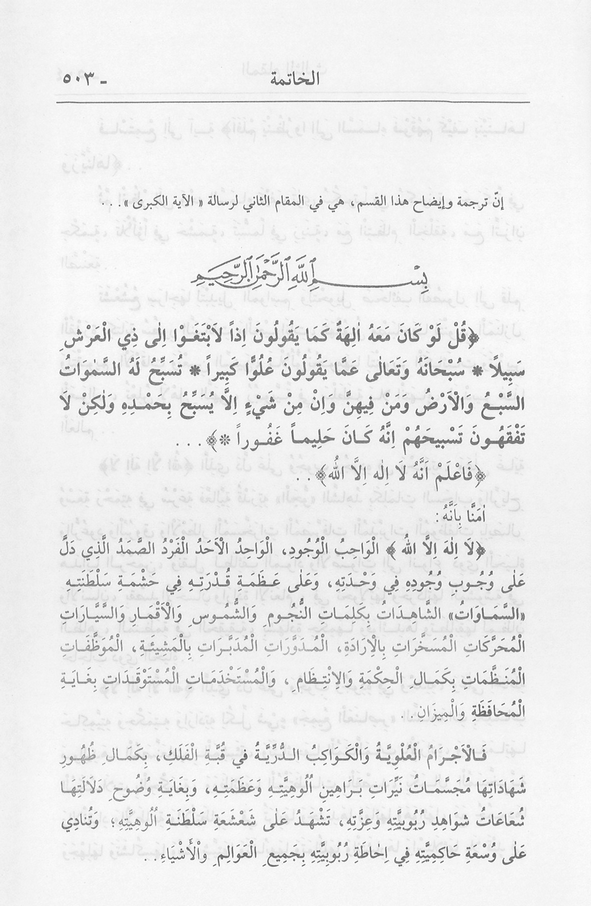 الخاتمة - ٥٠٣
إنّ ترجمة وإيضاح هذا القسم، هي في المقام الثاني لرسالة « الآية الكبرى »...
بِسْــمِ اللهِ الرَّحْمٰنِ الرَّحِيمِ
﴿قُلْ لَوْ كَانَ مَعَهُ اٰلِهَةٌ كَمَا يَقُولُونَ اِذاً لَابْتَغَـوْا اِلٰى ذِي الْعَرْشِ
سَبِيلاً * سُبْحَانَهُ وَتَعَالٰى عَمَّا يَقُولُونَ عُلُوًّا كَبِيراً * تُسَبِّحُ لَهُ السَّمٰوَاتُ
السَّبْعُ وَالْاَرْضُ وَمَنْ فِيهِنَّ وَاِنْ مِنْ شَيْءٍ اِلَّا يُسَبِّحُ بِحَمْدِهِ وَلٰكِنْ لَا
تَفْقَهُونَ تَسْبِيحَهُمْ اِنَّهُ كَانَ حَلِيماً غَفُوراً *﴾...
﴿فَاعْلَمْ اَنَّهُ لَا اِلٰه اِلَّا اللهُ﴾..
اٰمَنَّا بِاَنَّهُ:
﴿لَا اِلٰهَ اِلَّا اللهُ ﴾ الْوَاجِبُ الْوُجُودِ، الْوَاحِدُ الْاَحَدُ الْفَرْدُ الصَّمَدُ الَّذِي دَلَّ
عَلٰى وُجُوبِ وُجُودِهِ فِي وَحْدَتِهِ، وَعَلٰى عَظَمَةِ قُدْرَتِهِ فِي حَشْمَةِ سَلْطَنَتِهِ
«السَّمَاوَاتُ» الشَّاهِدَاتُ بِكَلِمَاتِ النُّجُومِ وَالشُّمُوسِ وَالْاَقْمَارِ وَالسَّيَّارَاتِ
الْمُحَرَّكَاتِ الْمُسَخَّرَاتِ بِالْاِرَادَةِ، الْمُدَوَّرَاتِ الْمُدَبَّرَاتِ بِالْمَشِيئَةِ، الْمُوَظَّفَاتِ
الْمُنَظَّمَاتِ بِكَمَالِ الْحِكْمَةِ وَالْاِنْتِظَامِ، وَالْمُسْتَخْدَمَاتِ الْمُسْتَوْقَدَاتِ بِغَايَةِ
الْمُحَافَظَةِ وَالْمِيزَانِ..
فَـالْاَجْرَامُ الْعُلْوِيَّةُ وَالْكَوَاكِبُ الدُّرِّيَّةُ فِي قُبَّةِ الْفَلَكِ، بِكَمَالِ ظُهُورِ
شَهَادَاتِهَا مُجَسَّمَاتُ نَيِّرَاتِ بَرَاهِينِ اُلُوهِيَّتِهِ وَعَظَمَتِهِ، وَبِغَايَةِ وُضُوحِ دَلَالَتِهَا
شُعَاعَاتُ شَوَاهِدِ رُبُوبِيَّتِهِ وَعِزَّتِهِ، تَشْهَدُ عَلٰى شَعْشَعَةِ سَلْطَنَةِ اُلُوهِيَّتِهِ؛ وَتُنَادِي
عَلٰى وُسْعَةِ حَاكِمِيَّتِهِ فِي اِحَاطَةِ رُبُوبِيَّتِهِ بِجَمِيعِ الْعَوَالِمِ وَالْأَشْيَاءِ..